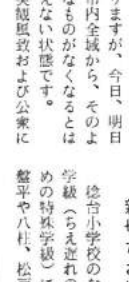 りますが、今日、明日
市内全域から、そのよ
うなものがなくなるとは
えない状態です。
美観風致および公衆に
稔台小学校のな
学級（ちえ遅れの
めの特殊学級）に
盤平や八柱、松戸